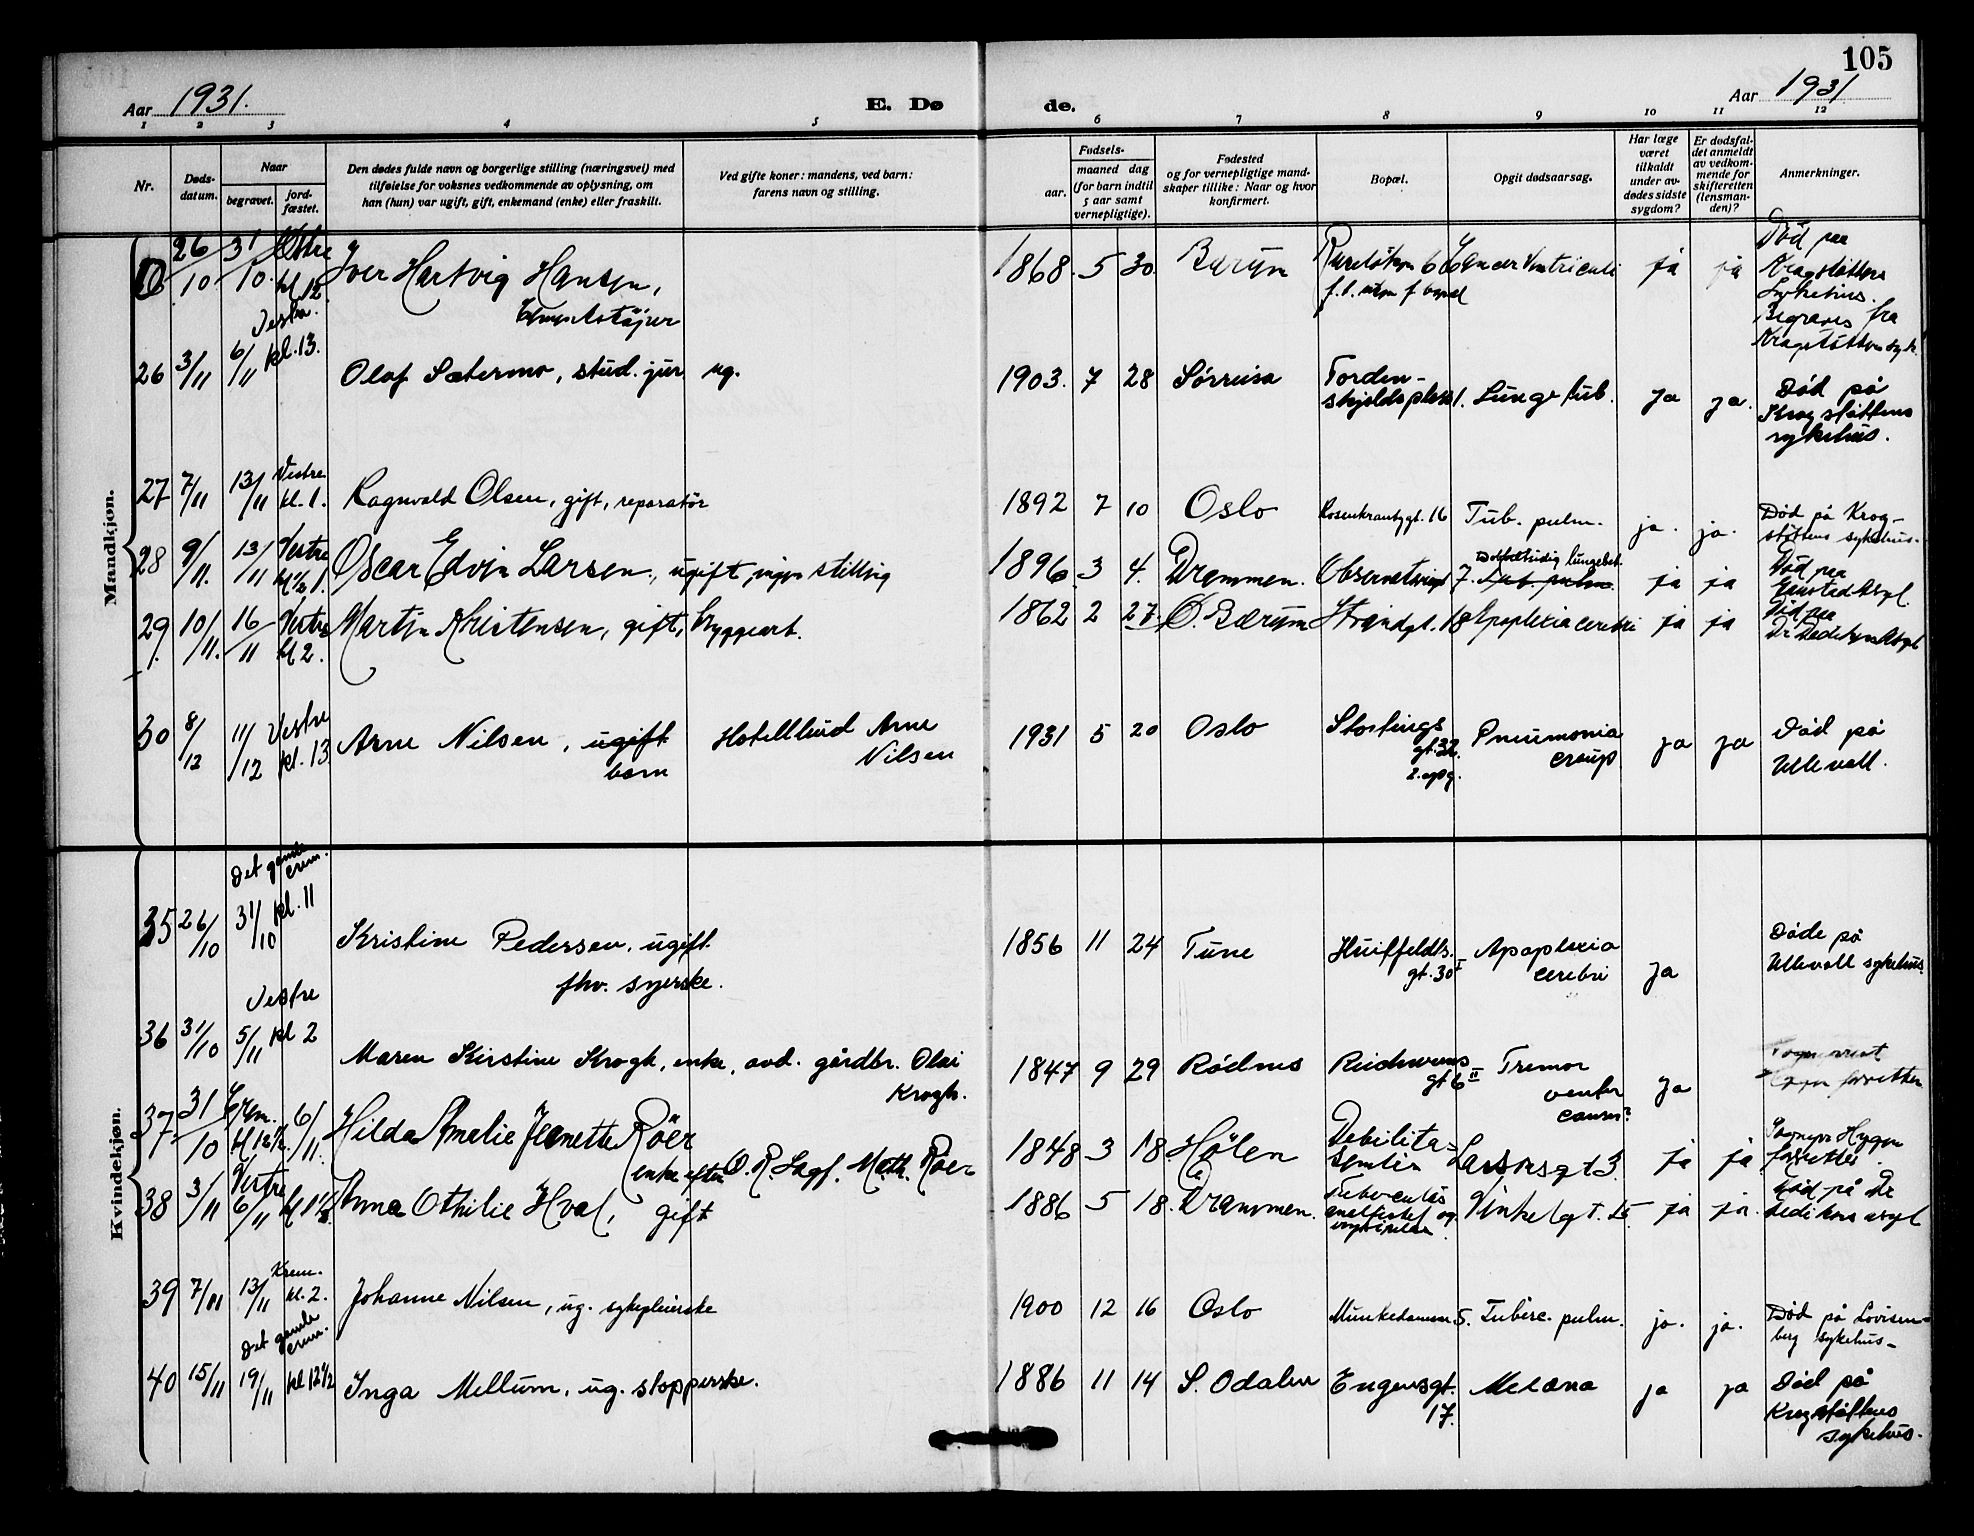 105
Aar 1931.
E. Dø
de.
Aar 1931
1 2 3 4 5 6 7 8 9 10 11 12
Nr.
Døds-
datum.
Naar
begravet.
jord-
fæstet.
Den dødes fulde navn og borgerlige stilling (næringsvei) med
tilføielse for voksnes vedkommende av oplysning, om
han (hun) var ugift, gift, enkemand (enke) eller fraskilt.
Ved gifte koner: mandens, ved barn:
farens navn og stilling.
Fødsels-
aar.
maaned dag
(for barn indtil
5 aar samt
vernepligtige).
Fødested
og for vernepligtige mand-
skaper tillike: Naar og hvor
konfirmert.
Bopæl.
Opgit dødsaarsag.
Har læge
været
tilkaldt
under av-
dødes sidste
sygdom?
Er dødsfal-
det anmeldt
av vedkom-
mende for
skifteretten
(lensman-
den)?
Anmerkninger.
Mandkjøn.
26/10 31/10 Østre kl 12 Iver Hartvig Hansen, 1868. 5 30. Bærum Cancer Ventriculi ja ja Død paa
Krogstøttens
Sykehus.
Begraves fra
Krogstøttens syk.
26 3/11 6/11 Vestre. kl. 13. Olaf Sætermo, stud. jur. ug. 1903. 7 28 Sørreisa Torden-
skjoldsplass 1. Lunge tub. ja ja. Død på
Krogstøttens
sykehus.
27 7/11 13/11 Vestre kl. 1. Ragnvald Olsen, gift, reparatør 1892 7 10 Oslo Rosenkrantzgt. 16 Tub. pulm. ja. ja. Død på Krog-
støttens sykehus.
28 9/11. 13/11 Vestre kl ½ 1. Oscar Edvin Larsen, ugift, ingen stilling 1896 3 4. Drammen. Observatoriegt 7. Dobbeltsidig lungebet. Tub. pulm. ja ja Død paa
Gaustad Asyl.
29 10/11. 16/11 Vestre kl 2. Martin Kristensen, gift, bryggearb. 1862 2 27. Ø. Bærum Strandgt. 18 Apoplexia cerebri ja ja Død paa
Dr Dedichens Asyl
30 8/12 11/12 Vestre kl. 13 Arne Nilsen, ugift
barn Hotellbud Arne
Nilsen 1931 5 20 Oslo Stortings
gt. 32
2. opg. Pneumonia
croup ja ja Død på
Ullevoll.
Kvindekjøn.
35 26/10 31/10 Det gamle crem. kl. 11 Kristine Pedersen, ugift.
fhv. syerske. 1856 11 24 Tune Huitfeldts.
gt. 30 I Apoplexia
cerebri ja Døde på
Ullevoll sykehus.
36 31/10 5/11 Vestre kl 2 Maren Kirstine Krogh, enke, avd. gårdbr. Olai
Krogh. 1847 9 29 Rødnes gt 6 II Tremor ja
37 31/10 Crem. kl 12½ 6/11. Hilda Amelie Jeanette Röer
enke efter O. R. Sagf. Math. Röer 1848 3 18. Hölen Debilitas
senilis Larsensgt 3. ja ja
38 3/11 6/11 Vestre kl 1½ Anna Othilie Hval, gift 1886 5 18. Drammen. Vinkelgt. 15 ja ja. Død på Dr
Dedichens asyl
39 7/11 13/11 Krem. kl. 2. Johanne Nilsen, ug. sykepleierske 1900 12 16 Oslo Munkedamsv. 5. Tuberc. pulm. ja. ja. Død på Lovisen-
berg sykehus.
40 15/11 19/11 Det gamle crem. kl 12½ Inga Mellum, ug. stopperske. 1886 11 14 S. Odalen Engensgt.
17. Melæna ja ja Død på
Krogstøttens
sykehus.